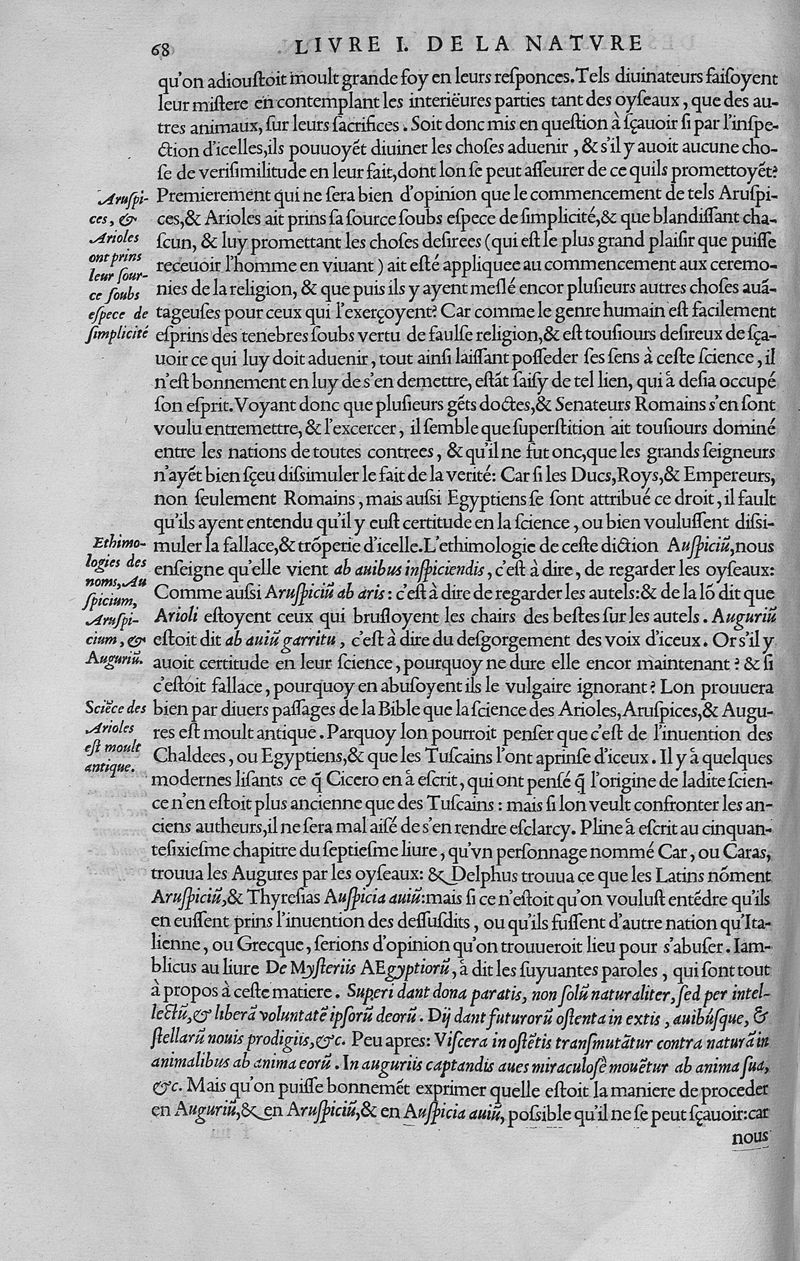 68 LIVRE I. DE LA NATVRE
qu'on adiouſtoit moult grande foy en leurs reſponces. Tels diuinateurs faiſoyent
leur miſtere en contemplant les interieures parties tant des oyſeaux, que des au-
tres animaux, ſur leurs ſacrifices. Soit donc mis en queſtion à ſçauoir ſi par l'inſpe-
ction d'icelles, ils pouuoyẽt diuiner les choſes aduenir, & s'il y auoit aucune cho-
ſe de veriſimilitude en leur fait, dont lon ſe peut aſſeurer de ce quils promettoyẽt?
Premierement qui ne ſera bien d'opinion que le commencement de tels Aruſpi-
ces, & Arioles ait prins ſa ſource ſoubs eſpece de ſimplicité, & que blandiſſant cha-
ſcun, & luy promettant les choſes deſirees (qui eſt le plus grand plaiſir que puiſſe
receuoir l'homme en viuant) ait eſté appliquee au commencement aux ceremo-
nies de la religion, & que puis ils y ayent meſlé encor pluſieurs autres choſes auã-
tageuſes pour ceux qui l'exerçoyent? Car comme le genre humain eſt facilement
eſprins des tenebres ſoubs vertu de faulſe religion, & eſt touſiours deſireux de ſça-
uoir ce qui luy doit aduenir, tout ainſi laiſſant poſſeder ſes ſens à ceſte ſcience, il
n'eſt bonnement en luy de s'en demettre, eſtãt ſaiſy de tel lien, qui à deſia occupé
ſon eſprit. Voyant donc que pluſieurs gẽts doctes, & Senateurs Romains s'en ſont
voulu entremettre, & l'excercer, il ſemble que ſuperſtition ait touſiours dominé
entre les nations de toutes contrees, & qu'il ne fut onc, que les grands ſeigneurs
n'ayẽt bien ſçeu diſsimuler le fait de la verité: Car ſi les Ducs, Roys, & Empereurs,
non ſeulement Romains, mais auſsi Egyptiens ſe ſont attribué ce droit, il fault
qu'ils ayent entendu qu'il y euſt certitude en la ſcience, ou bien vouluſſent diſsi-
muler la fallace, & trõperie d'icelle. L'ethimologie de ceſte diction Auſpiciũ, nous
enſeigne qu'elle vient ab auibus inſpiciendis, c'eſt à dire, de regarder les oyſeaux:
Comme auſsi Aruſpiciũ ab aris: c'eſt à dire de regarder les autels: & de la lõ dit que
Arioli eſtoyent ceux qui bruſloyent les chairs des beſtes ſur les autels. Auguriũ
eſtoit dit ab auiũ garritu, c'eſt à dire du deſgorgement des voix d'iceux. Or s'il y
auoit certitude en leur ſcience, pourquoy ne dure elle encor maintenant? & ſi
c'eſtoit fallace, pourquoy en abuſoyent ils le vulgaire ignorant? Lon prouuera
bien par diuers paſſages de la Bible que la ſcience des Arioles, Aruſpices, & Augu-
res eſt moult antique. Parquoy lon pourroit penſer que c'eſt de l'inuention des
Chaldees, ou Egyptiens, & que les Tuſcains l'ont aprinſe d'iceux. Il y à quelques
modernes liſants ce q̃ Cicero en à eſcrit, qui ont penſé q̃ l'origine de ladite ſcien-
ce n'en eſtoit plus ancienne que des Tuſcains: mais ſi lon veult confronter les an-
ciens autheurs, il ne ſera mal aiſé de s'en rendre eſclarcy. Pline à eſcrit au cinquan-
teſixieſme chapitre du ſeptieſme liure, qu'vn perſonnage nommé Car, ou Caras,
trouua les Augures par les oyſeaux: & Delphus trouua ce que les Latins nõment
Aruſpiciũ, & Thyreſias Auſpicia auiũ: mais ſi ce n'eſtoit qu'on vouluſt entẽdre qu'ils
en euſſent prins l'inuention des deſſuſdits, ou qu'ils fuſſent d'autre nation qu'Ita-
lienne, ou Grecque, ſerions d'opinion qu'on trouueroit lieu pour s'abuſer. Iam-
blicus au liure De Myſteriis AEgyptiorũ, à dit les ſuyuantes paroles, qui ſont tout
à propos à ceſte matiere. Superi dant dona paratis, non ſolũ naturaliter, ſed per intel-
lectũ, & liberã voluntatẽ ipſorũ deorũ. Dij dant futurorũ oſtenta in extis, auibúſque, &
ſtellarũ nouis prodigiis, &c. Peu apres: Viſcera in oſtẽtis tranſmutãtur contra naturã in
animalibus ab anima eorũ. In auguriis captandis aues miraculoſè mouẽtur ab anima ſua,
&c. Mais qu'on puiſſe bonnemẽt exprimer quelle eſtoit la maniere de proceder
en Auguriũ, & en Aruſpiciũ, & en Auſpicia auiũ, poſsible qu'il ne ſe peut ſçauoir: car
nous
Aruſpi-
ces, &
Arioles
ont prins
leur ſour-
ce ſoubs
eſpece de
ſimplicité
Ethimo-
logies des
noms, Au
ſpicium,
Aruſpi-
cium, &
Auguriũ.
Sciẽce des
Arioles
eſt moult
antique.